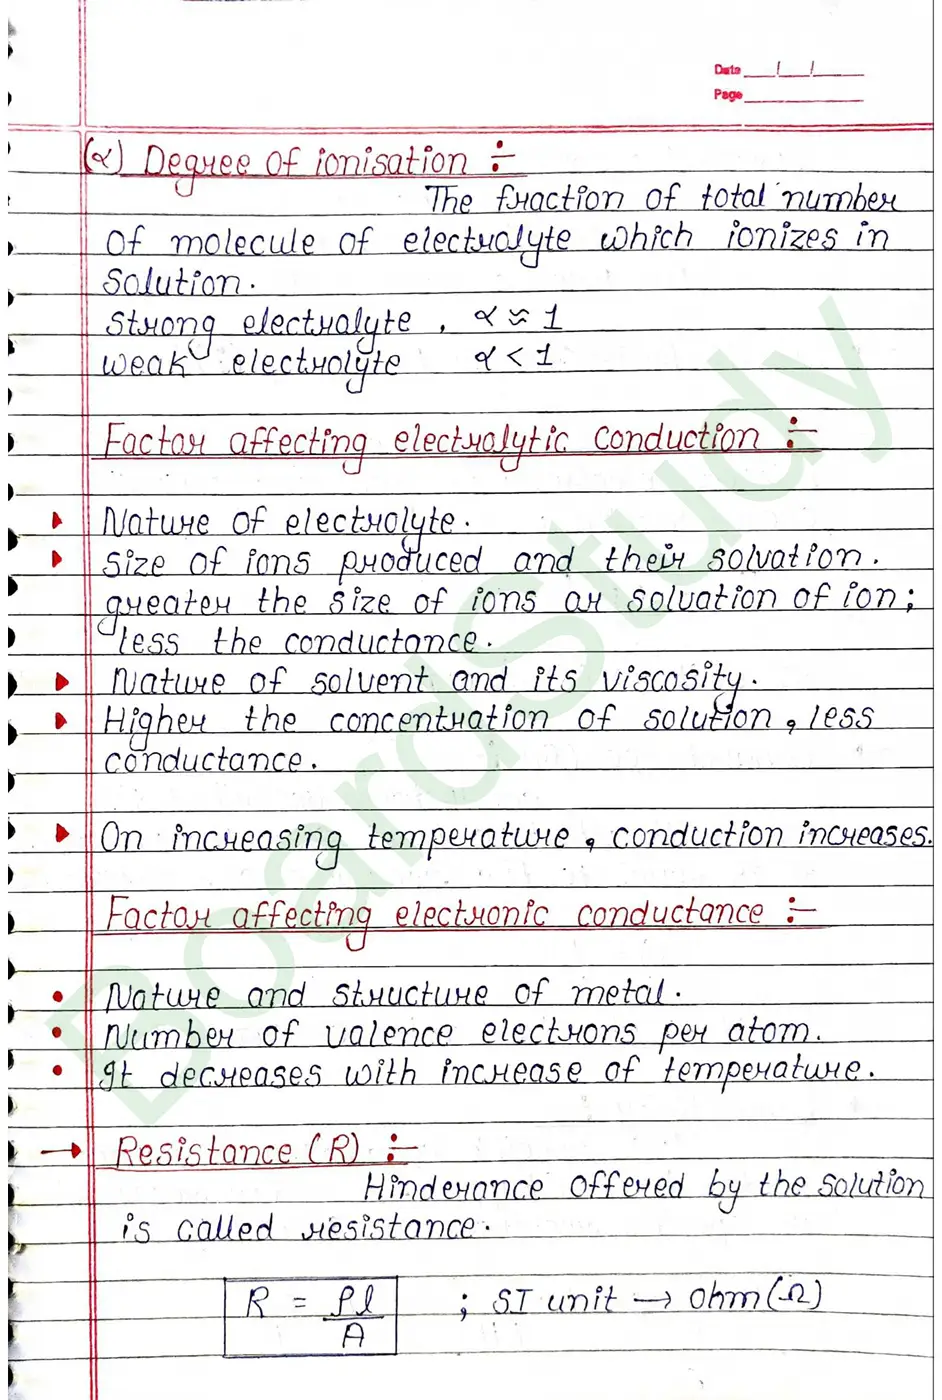 Date / /
Page
(α) Degree of ionisation :-
The fraction of total number
Of molecule of electrolyte which ionizes in
Solution.
Strong electrolyte , α ≈ 1
weak electrolyte α < 1
Factor affecting electrolytic conduction :-
Nature of electrolyte.
Size of ions produced and their solvation.
greater the size of ions or solvation of ion ;
less the conductance.
Nature of solvent and its viscosity.
Higher the concentration of solution, less
conductance.
On increasing temperature, conduction increases.
Factor affecting electronic conductance :-
Nature and structure of metal.
Number of valence electrons per atom.
It decreases with increase of temperature.
→ Resistance (R) :-
Hinderance offered by the solution
is called resistance.
R = ρl/A ; SI unit → Ohm(Ω)
BoardStudy